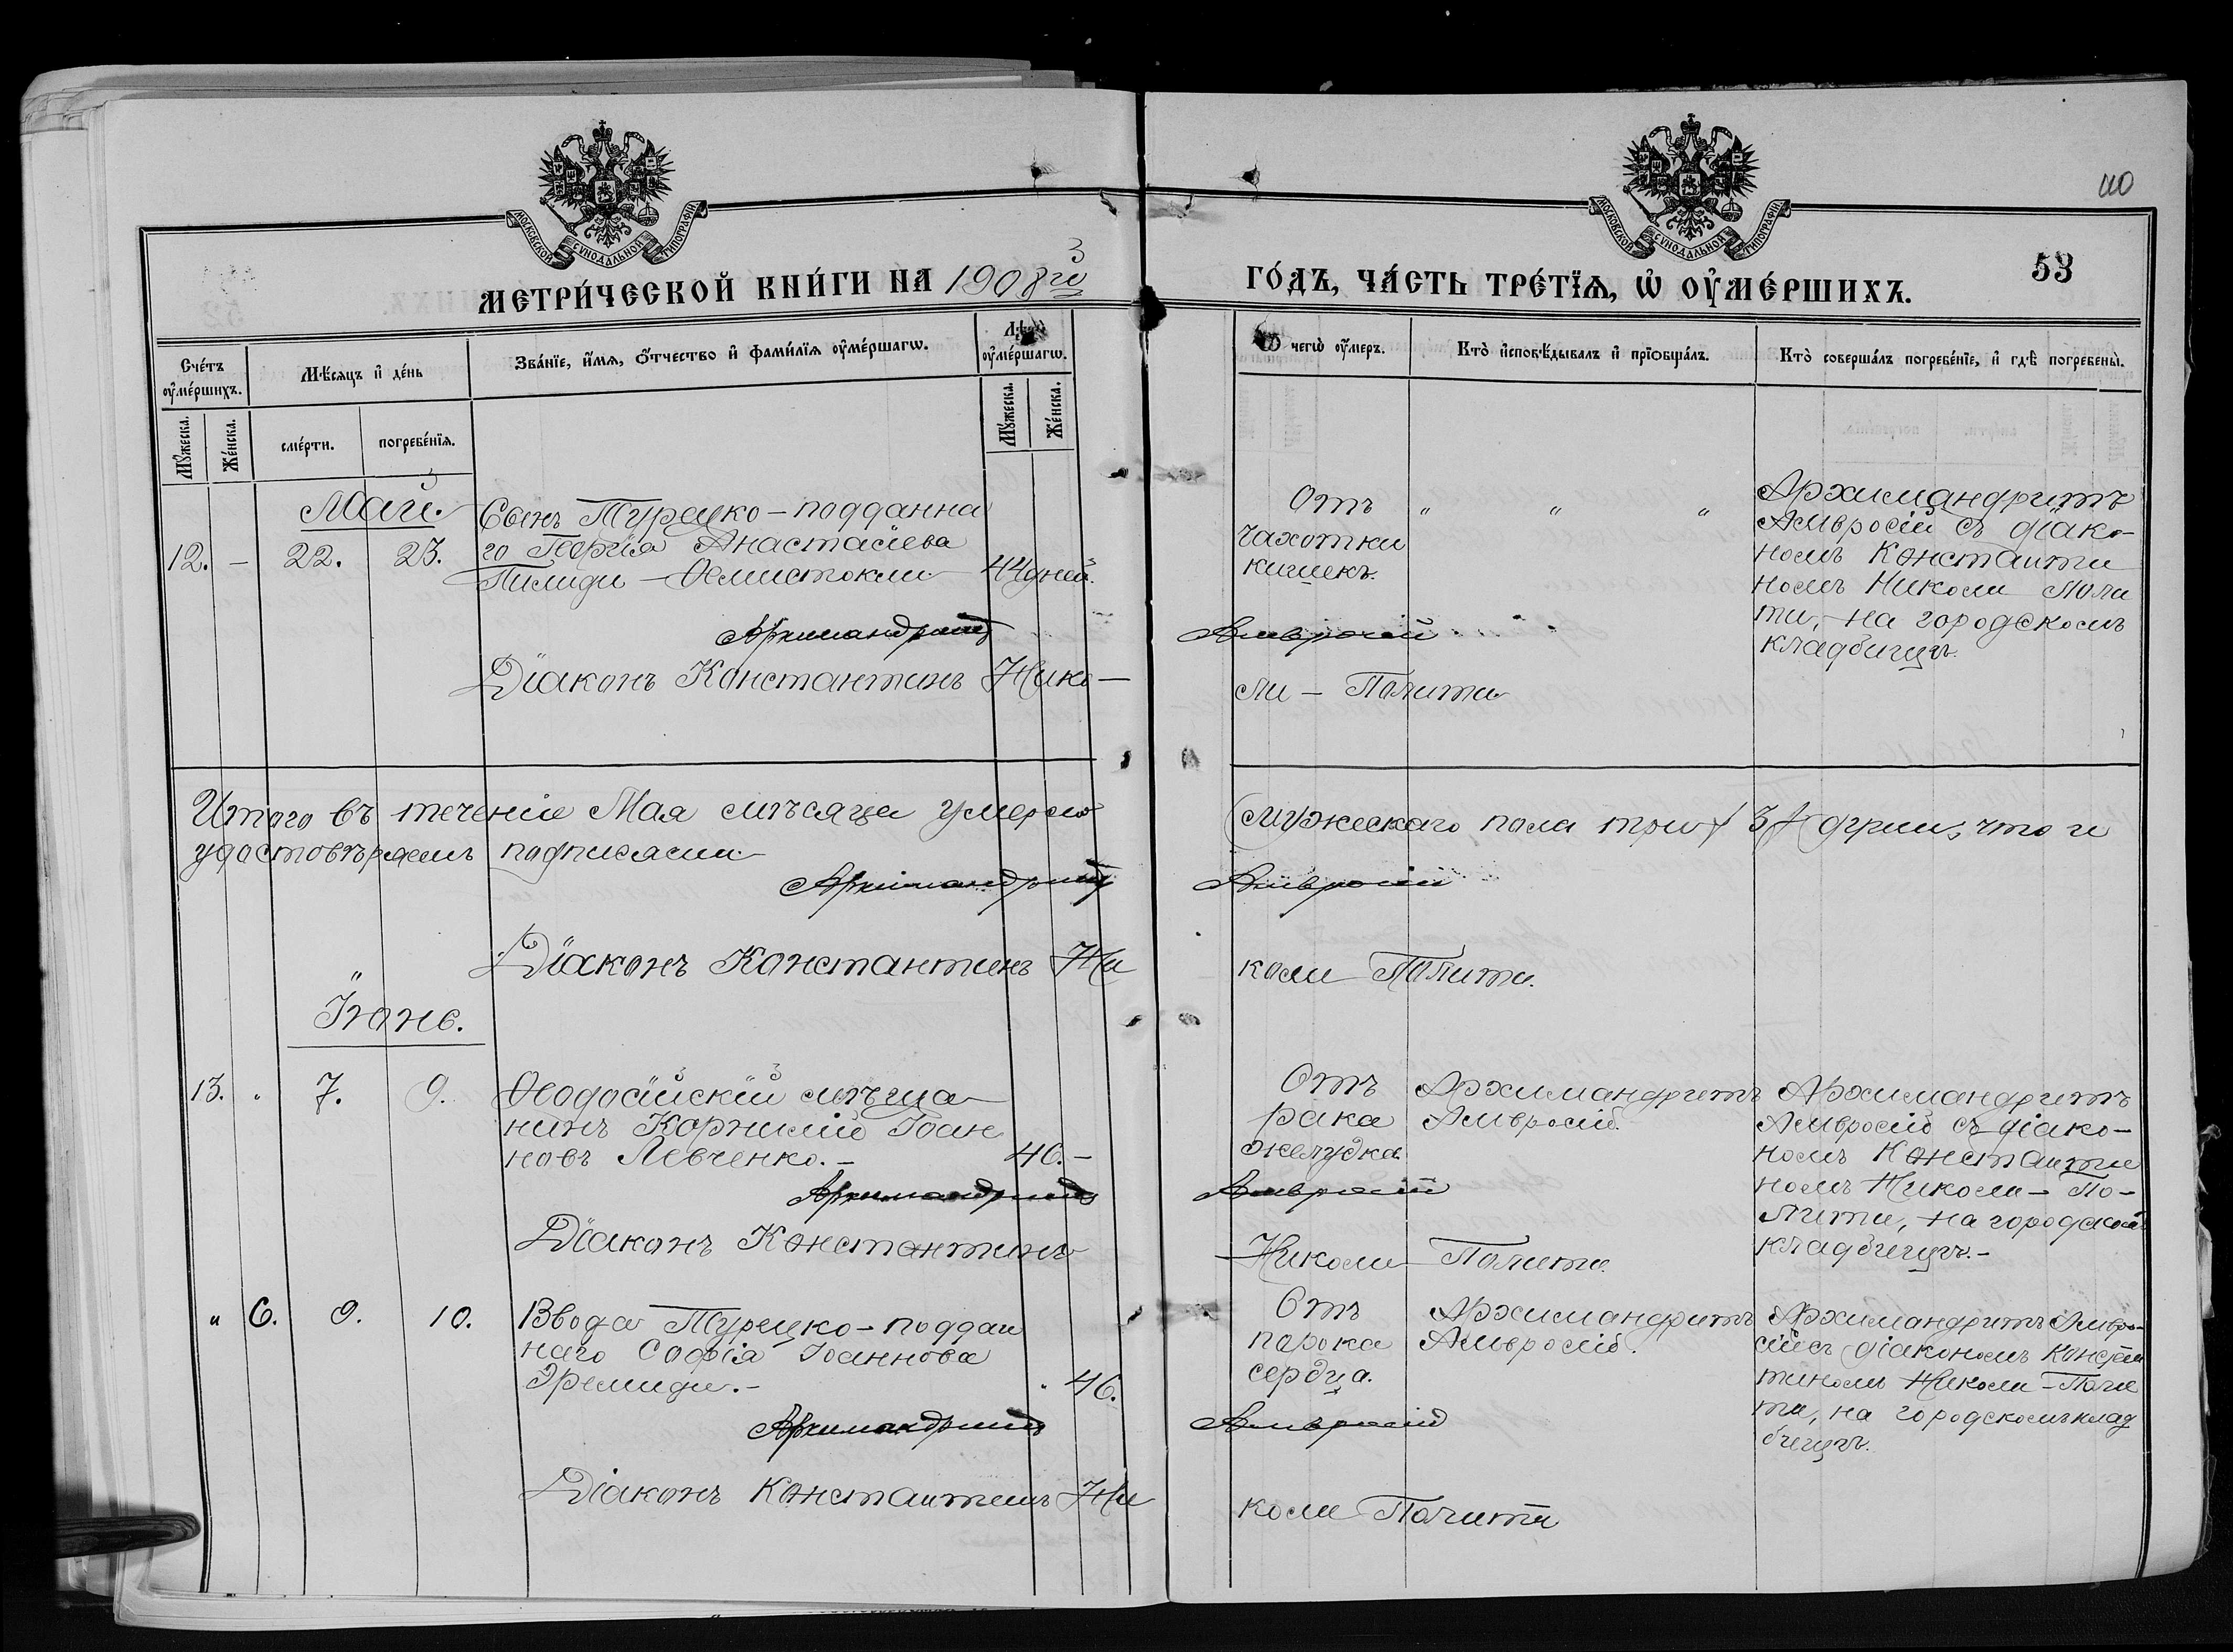 110
МОСКОВСКОЙ СѴНОДАЛЬНОЙ ТИПОГРАФІИ
МОСКОВСКОЙ СѴНОДАЛЬНОЙ ТИПОГРАФІИ
МЕТРИ́ЧЕСКОЙ КНИ́ГИ НА 1908 го
ГО́ДЪ, ЧА́СТЬ ТРЕ́ТЇѦ, Ѡ ОУ҆МЕ́РШИХЪ.
53
Сче́тъ оу҆ме́ршихъ.
Мѣ́сяцъ и҆ де́нь
Зва́нїе, и҆́мѧ, ѻ҆́тчество и҆ фами́лїѧ оу҆ме́ршагѡ.
Лѣта оу҆ме́ршагѡ.
Ѿ чегѡ̀ оу҆́меръ.
Кто̀ и҆сповѣ́дывалъ и҆ прїѡбща́лъ.
Кто̀ соверша́лъ погребе́нїе, и҆ гдѣ̀ погребены̀.
Мꙋ́жеска.
Же́нска.
сме́рти.
погребе́нїѧ.
Мꙋ́жеска.
Же́нска.
Май.
12. — 22. 23.
Сынъ Турецко-подданна
го Георгія Анастасіева
Пилиди — Ѳемистокли 44 дней.
Отъ
чахотки
кишекъ.
" " "
Архимандритъ
Амвросій съ діако-
номъ Константи
номъ Николи Поли
ти, на городскомъ
кладбищѣ.
Архимандритъ Амвросій
Діаконъ Константинъ Нико-
ли — Полити
Итого въ теченіе Мая мѣсяца умерло мужескаго пола три / 3 / души, что и
удостовѣряемъ подписями
Архимандритъ Амвросій
Діаконъ Константинъ Ни
коли Полити.
Іюнь.
13. " 7. 9.
Ѳеодосійскій мѣща-
нинъ Корнилій Іоан
новъ Левченко. — 46. —
Отъ
рака
желудка
Архимандритъ
Амвросій.
Архимандритъ
Амвросій съ діако-
номъ Константи
номъ Николи — По-
лити, на городскомъ
кладбищѣ. —
Архимандритъ Амвросій
Діаконъ Константинъ
Николи Полити.
" 6. 9. 10.
Вдова Турецко-поддан
наго Софія Іоаннова
Эремиди. — " 46.
Отъ
порока
сердца.
Архимандритъ
Амвросій.
Архимандритъ Амвро-
сій съ діакономъ Констан
тиномъ Николи — Поли
ти, на городскомъ клад
бищѣ.
Архимандритъ Амвросій
Діаконъ Константинъ Ни
коли Полити